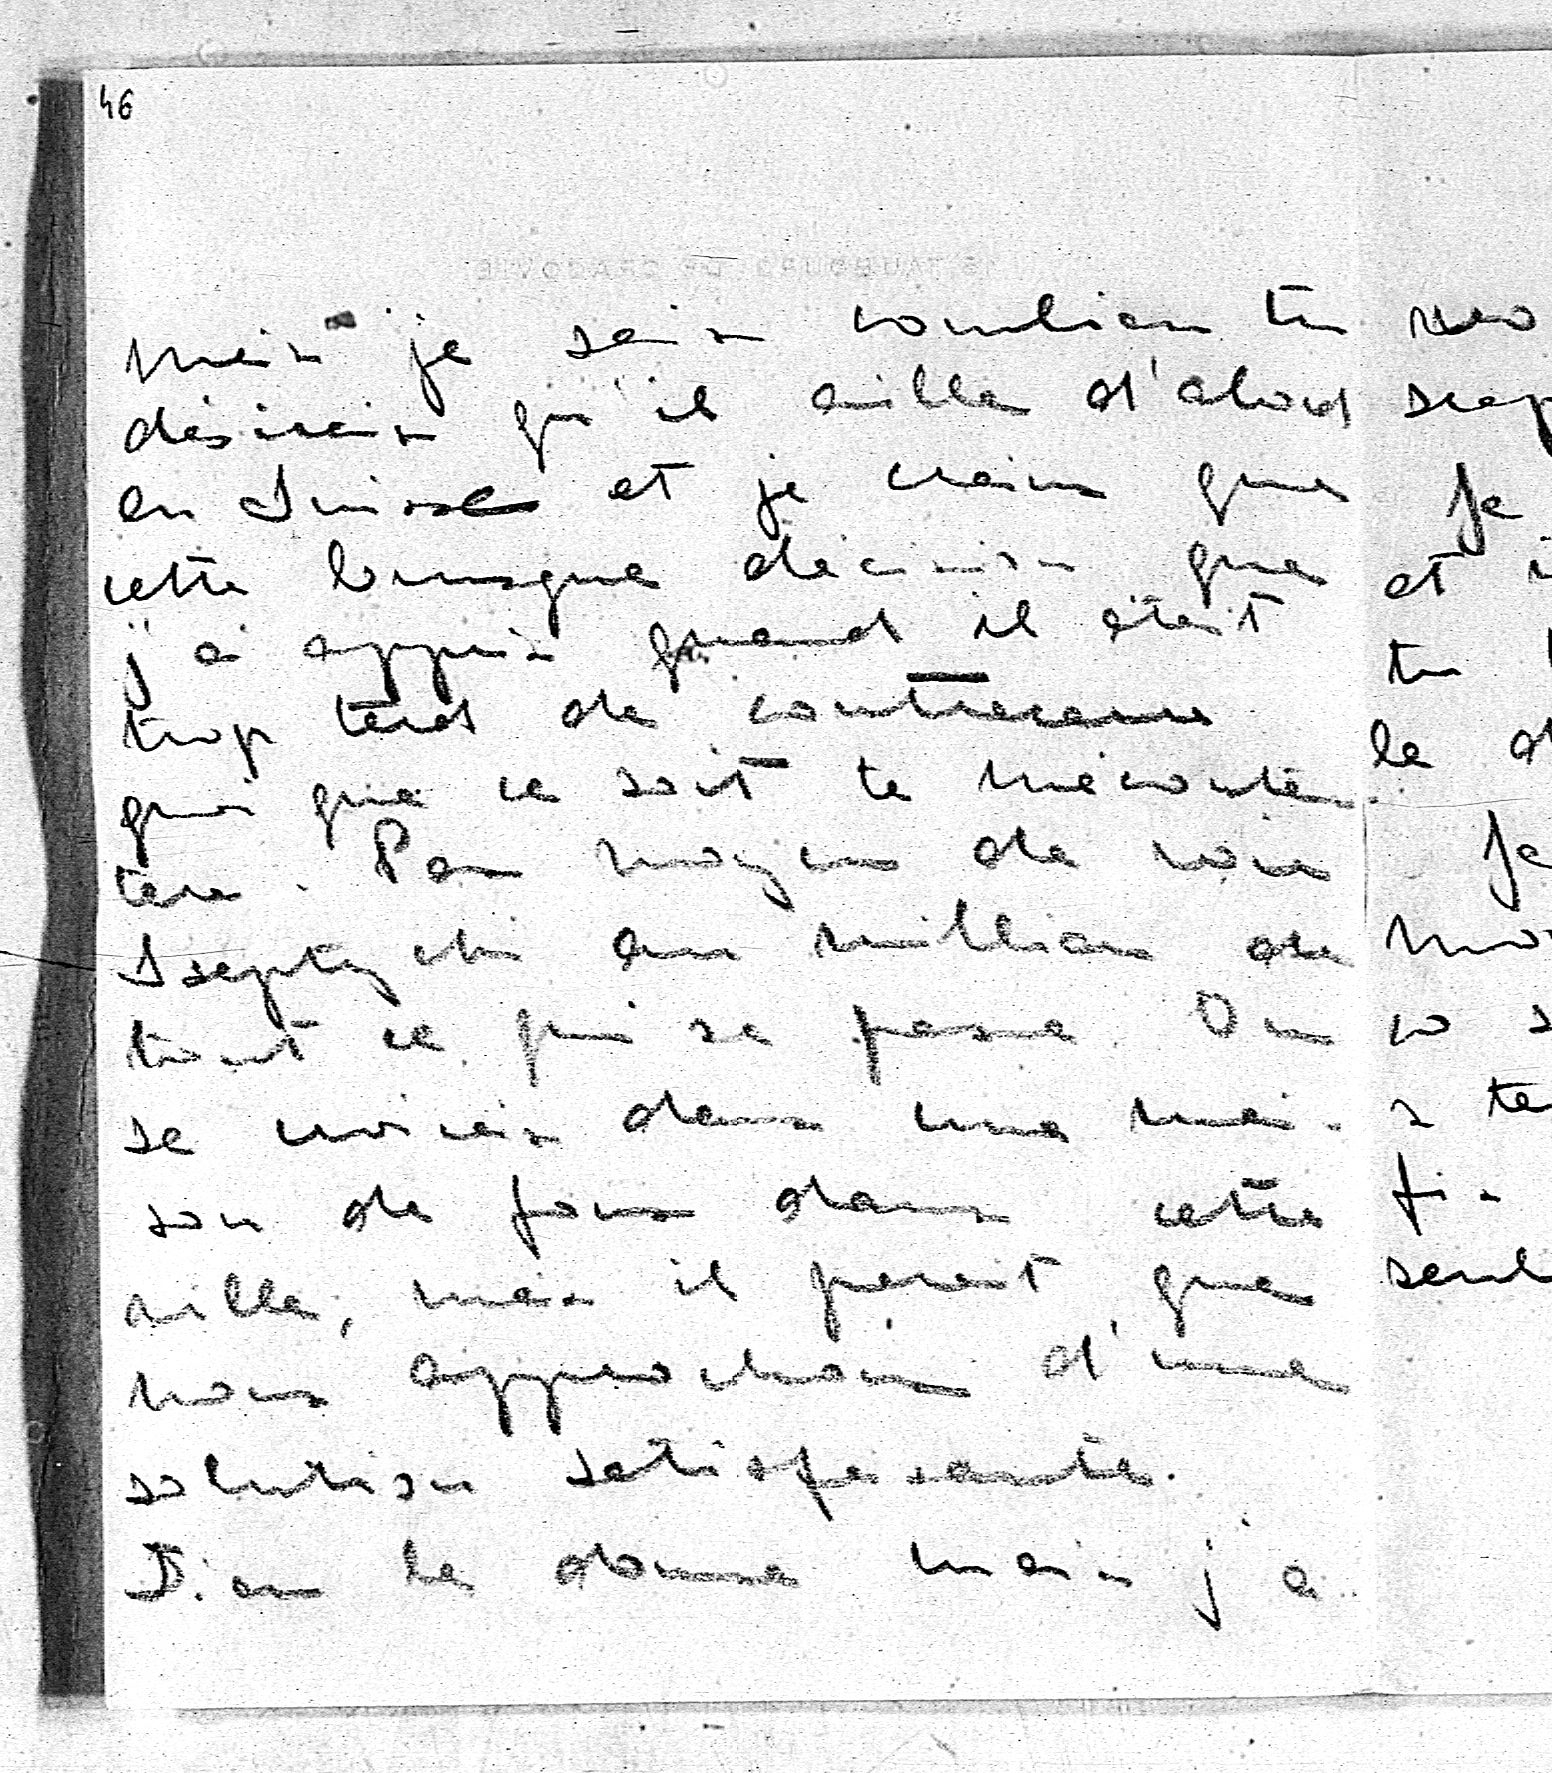 46
mais je sais combien tu
désirais qu'il aille d'abord
en Suisse et je crains que
cette brusque décision que
j'ai appris quand il était
trop tard de contrecarrer
quoi que ce soit te mécontentera.
Pas moyen de voir
au million de
tout ce qui se passe. On
se croirais dans une mai-
son de fous dans cette
ville, mais il parait que
nous approchons d'une
solution satisfaisante.
Dieu le donne mais j'ai
Je
et
tu
le
Je